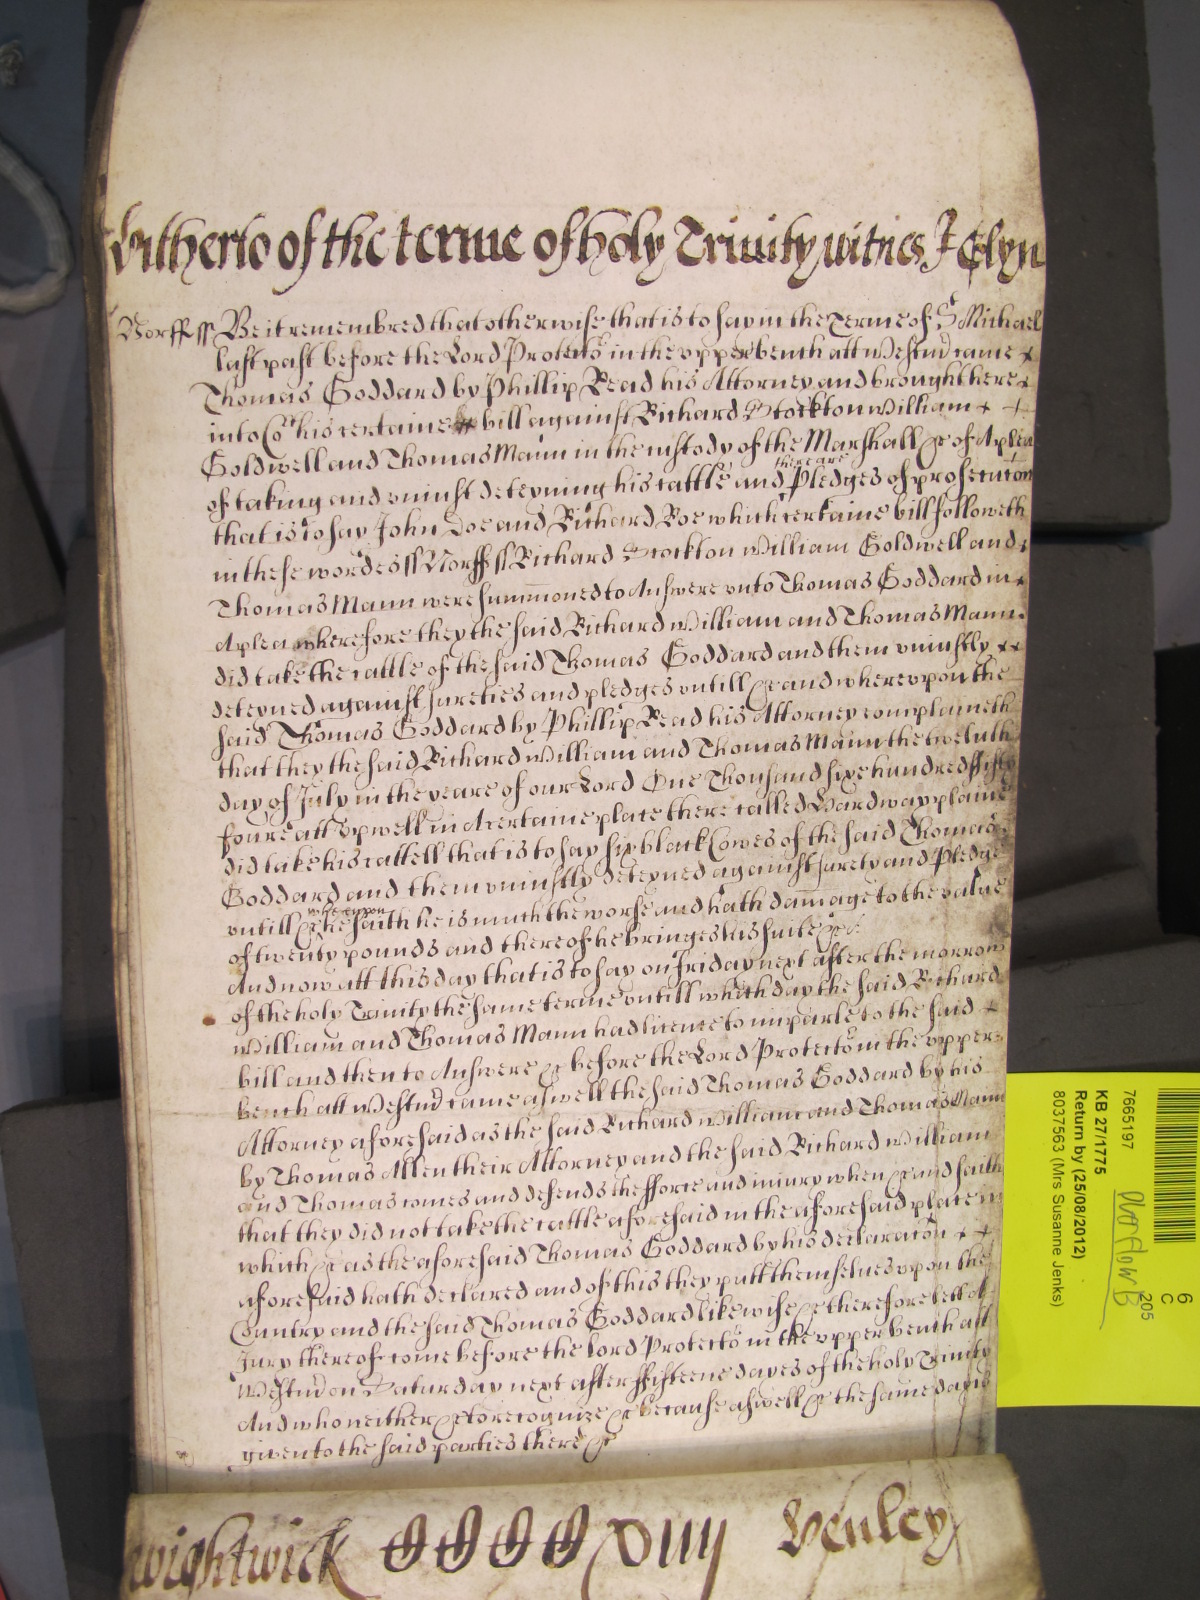 hitherto of the terme of holy Trinity witnes J Glyn
Norff ss Be it remembred that otherwise that is to say in the Terme of St Michael
last past before the Lord Protector in the upper bench att Westmr came
Thomas Goddard by Phillip Read his Attorney and brought here
into Co his certaine bill against Richard Stockton William
Goldwell and Thomas Mann in the custody of the Marshall &c of A plea
of taking and uniust deteyning his cattle and there are Pledges of prosecucon
that is to say John Doe and Richard Roe which certaine bill followeth
in these wordes ss Norff ss Richard Stockton William Goldwell and
Thomas Mann were summoned to Answere unto Thomas Goddard in
A plea wherefore they the said Richard William and Thomas Mann
did take the cattle of the said Thomas Goddard and them uniustly
deteyned against sureties and pledges untill &c and whereupon the
said Thomas Goddard by Phillip Read his Attorney complaineth
that they the said Richard William and Thomas Mann the twelueth
day of July in the yeare of our Lord One Thousand sixe hundred ffifty
foure att Upwell in A certaine place there called Hardway plaine
did take his cattell that is to say six black Cowes of the said Thomas
Goddard and them uniustly deteyned against surety and Pledge
untill &c whereupon he saith he is much the worse and hath dammage to the value
of twenty pounds and thereof he bringes his suite &c
And now att this day that is to say on Friday next after the morrow
of the holy Trinity the same terme untill which day the said Richard
William and Thomas Mann had licence to imparle to the said
bill and then to Answere &c before the Lord Protector in the upper
bench att Westmr came aswell the said Thomas Goddard by his
Attorney aforesaid as the said Richard William and Thomas Mann
by Thomas Allen their Attorney and the said Richard William
and Thomas comes and defends the fforce and iniury when &c and saith
that they did not take the cattle aforesaid in the aforesaid place in
which &c as the aforesaid Thomas Goddard by his declaracon
aforesaid hath declared and of this they putt themselues upon the
Country and the said Thomas Goddard likewise &c therefore lett A
Jury thereof come before the Lord Protector in the upper bench att
Westmr on Saturday next after ffifteene dayes of the holy Trinity
And who neither &c to recognize &c because aswell &c the same day is
given to the said parties there &c
Wightwick
Henley
7665197
KB 27/1775
Return by (25/08/2012)
8037563 (Mrs Susanne Jenks)
6
C
205